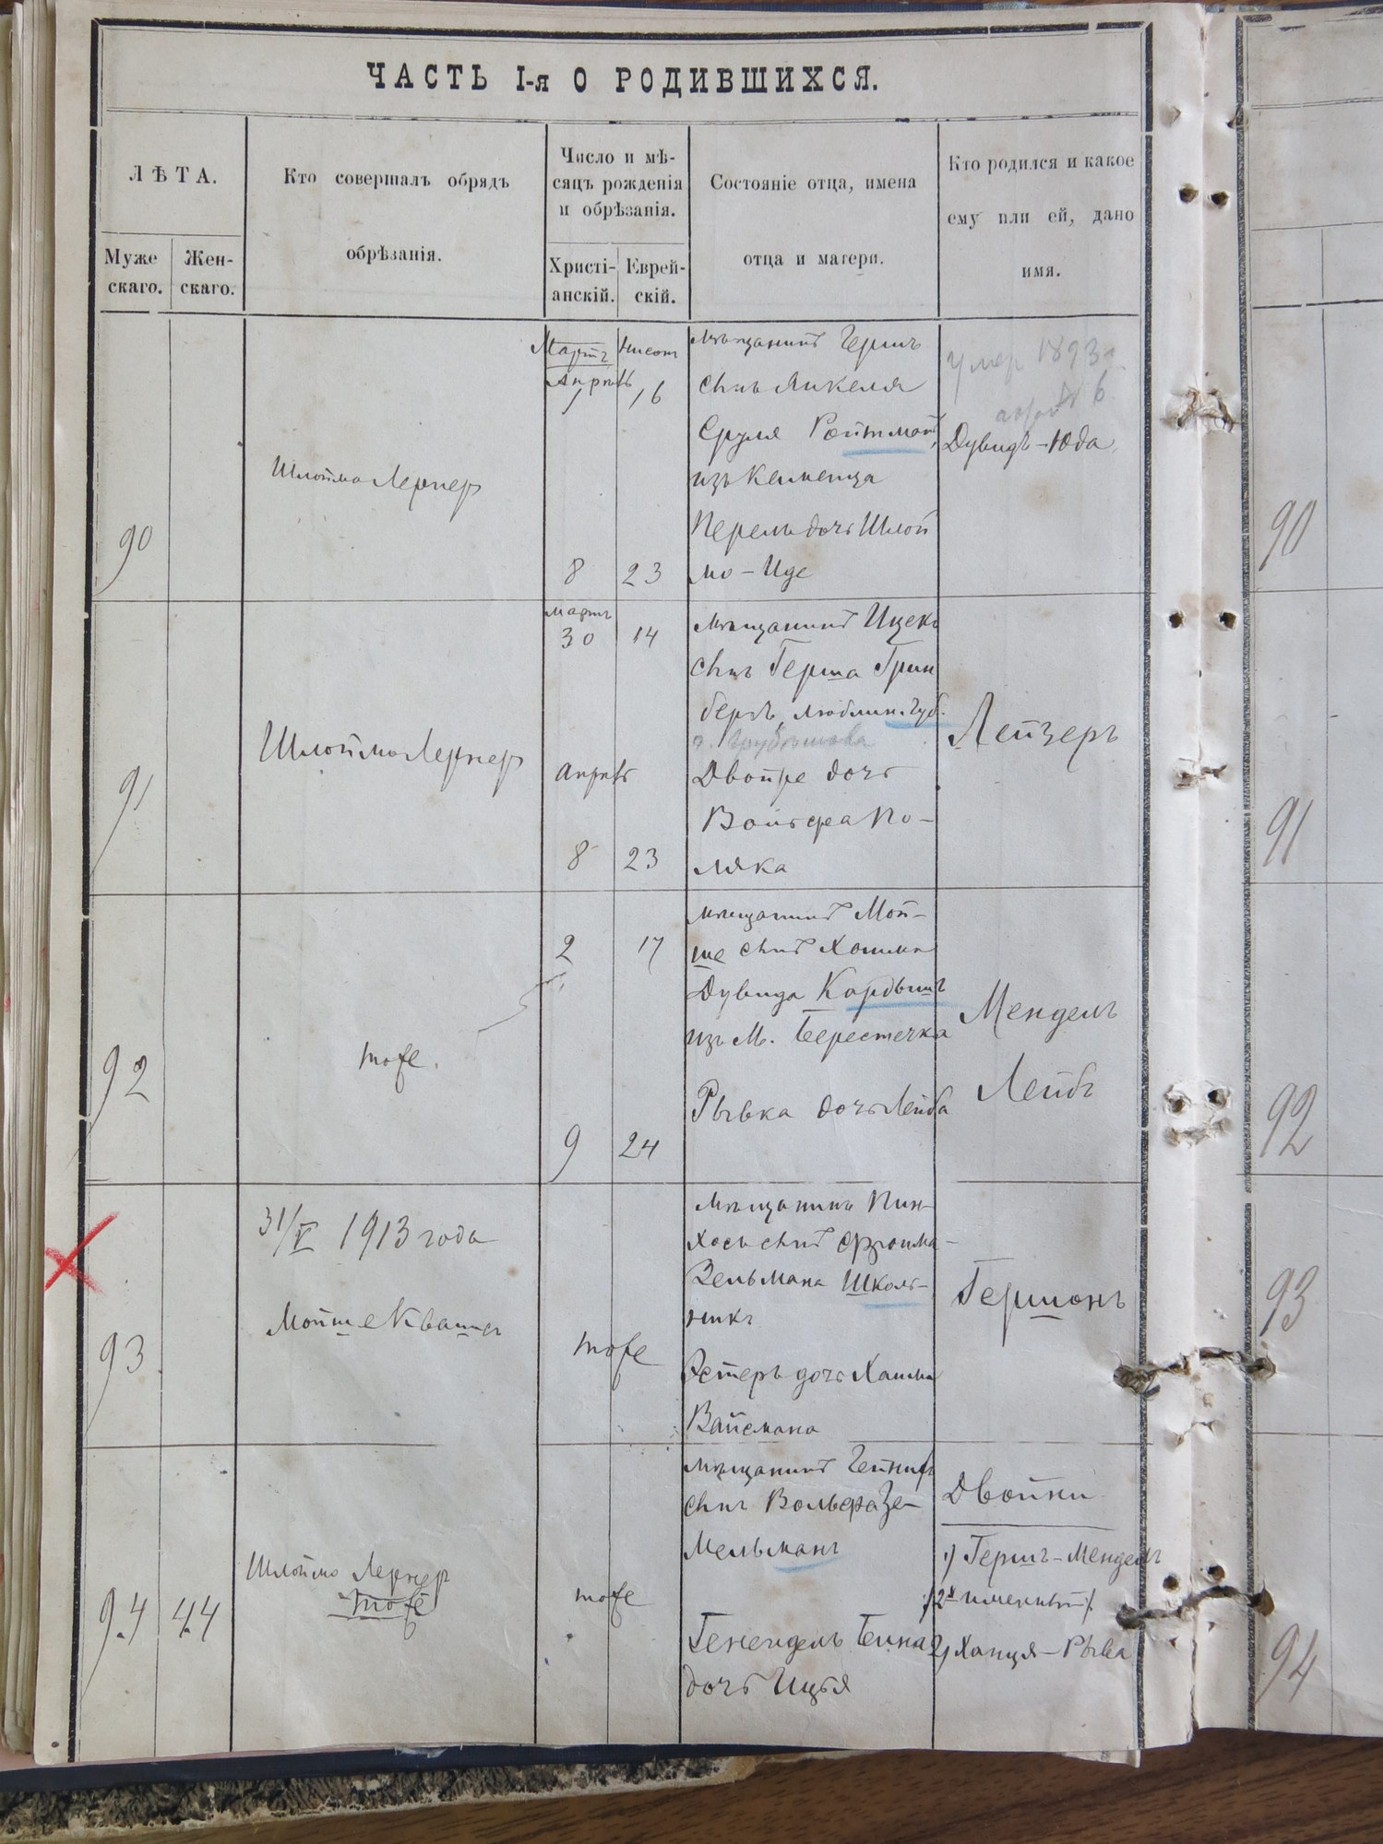 ЧАСТЬ I-я О РОДИВШИХСЯ.
ЛѢТА.
Муже
скаго.
Жен-
скаго.
Кто совершалъ обрядъ
обрѣзанія.
Число и мѣ-
сяцъ рожденія
и обрѣзанія.
Христі-
анскій.
Еврей-
скій.
Состояніе отца, имена
отца и матери.
Кто родился и какое
ему или ей, дано
имя.
90
Шлойма Лернер
Мартъ
Апрѣль
1
Нисон
16
8
23
Мѣщанинъ Гершъ
сынъ Янкеля
Сруля Ройтман,
изъ Кеменца
Перель дочь Шлой
мо-Иде
умер 1893 г.
6
Дувидъ-Юда
90
91
Шлоймо Лернер
мартъ
30
14
Апрѣль
8
23
Мѣщанинъ Ицекъ
сынъ Герша Грин
бергъ, Люблин. губ.
г. Грубешова
Двойре дочь
Вольфа По-
ляка
Лейзеръ
91
92
тоже.
2
17
9
24
мѣщанинъ Мой-
ше сынъ Хаима
Дувида Кордышъ
изъ М. Берестечка
Рывка дочь Лейба
Мендель
Лейбъ
92
93
31/V 1913 года
Мойше Квашa
тоже
Мѣщанинъ Пин-
хосъ сынъ Фроима-
Зельмана Школь-
никъ
Эстеръ дочь Хаима
Вайсмана
Гершонъ
93
94
44
Шлоймо Лернер
тоже
тоже
мѣщанинъ Гейнихъ
сынъ Вольфа Зе-
мельманъ
Генендель Бейна
дочь Ицья
Двойни
1) Гершъ-Мендель
/2х именный/
2) Ханця-Рывa
94